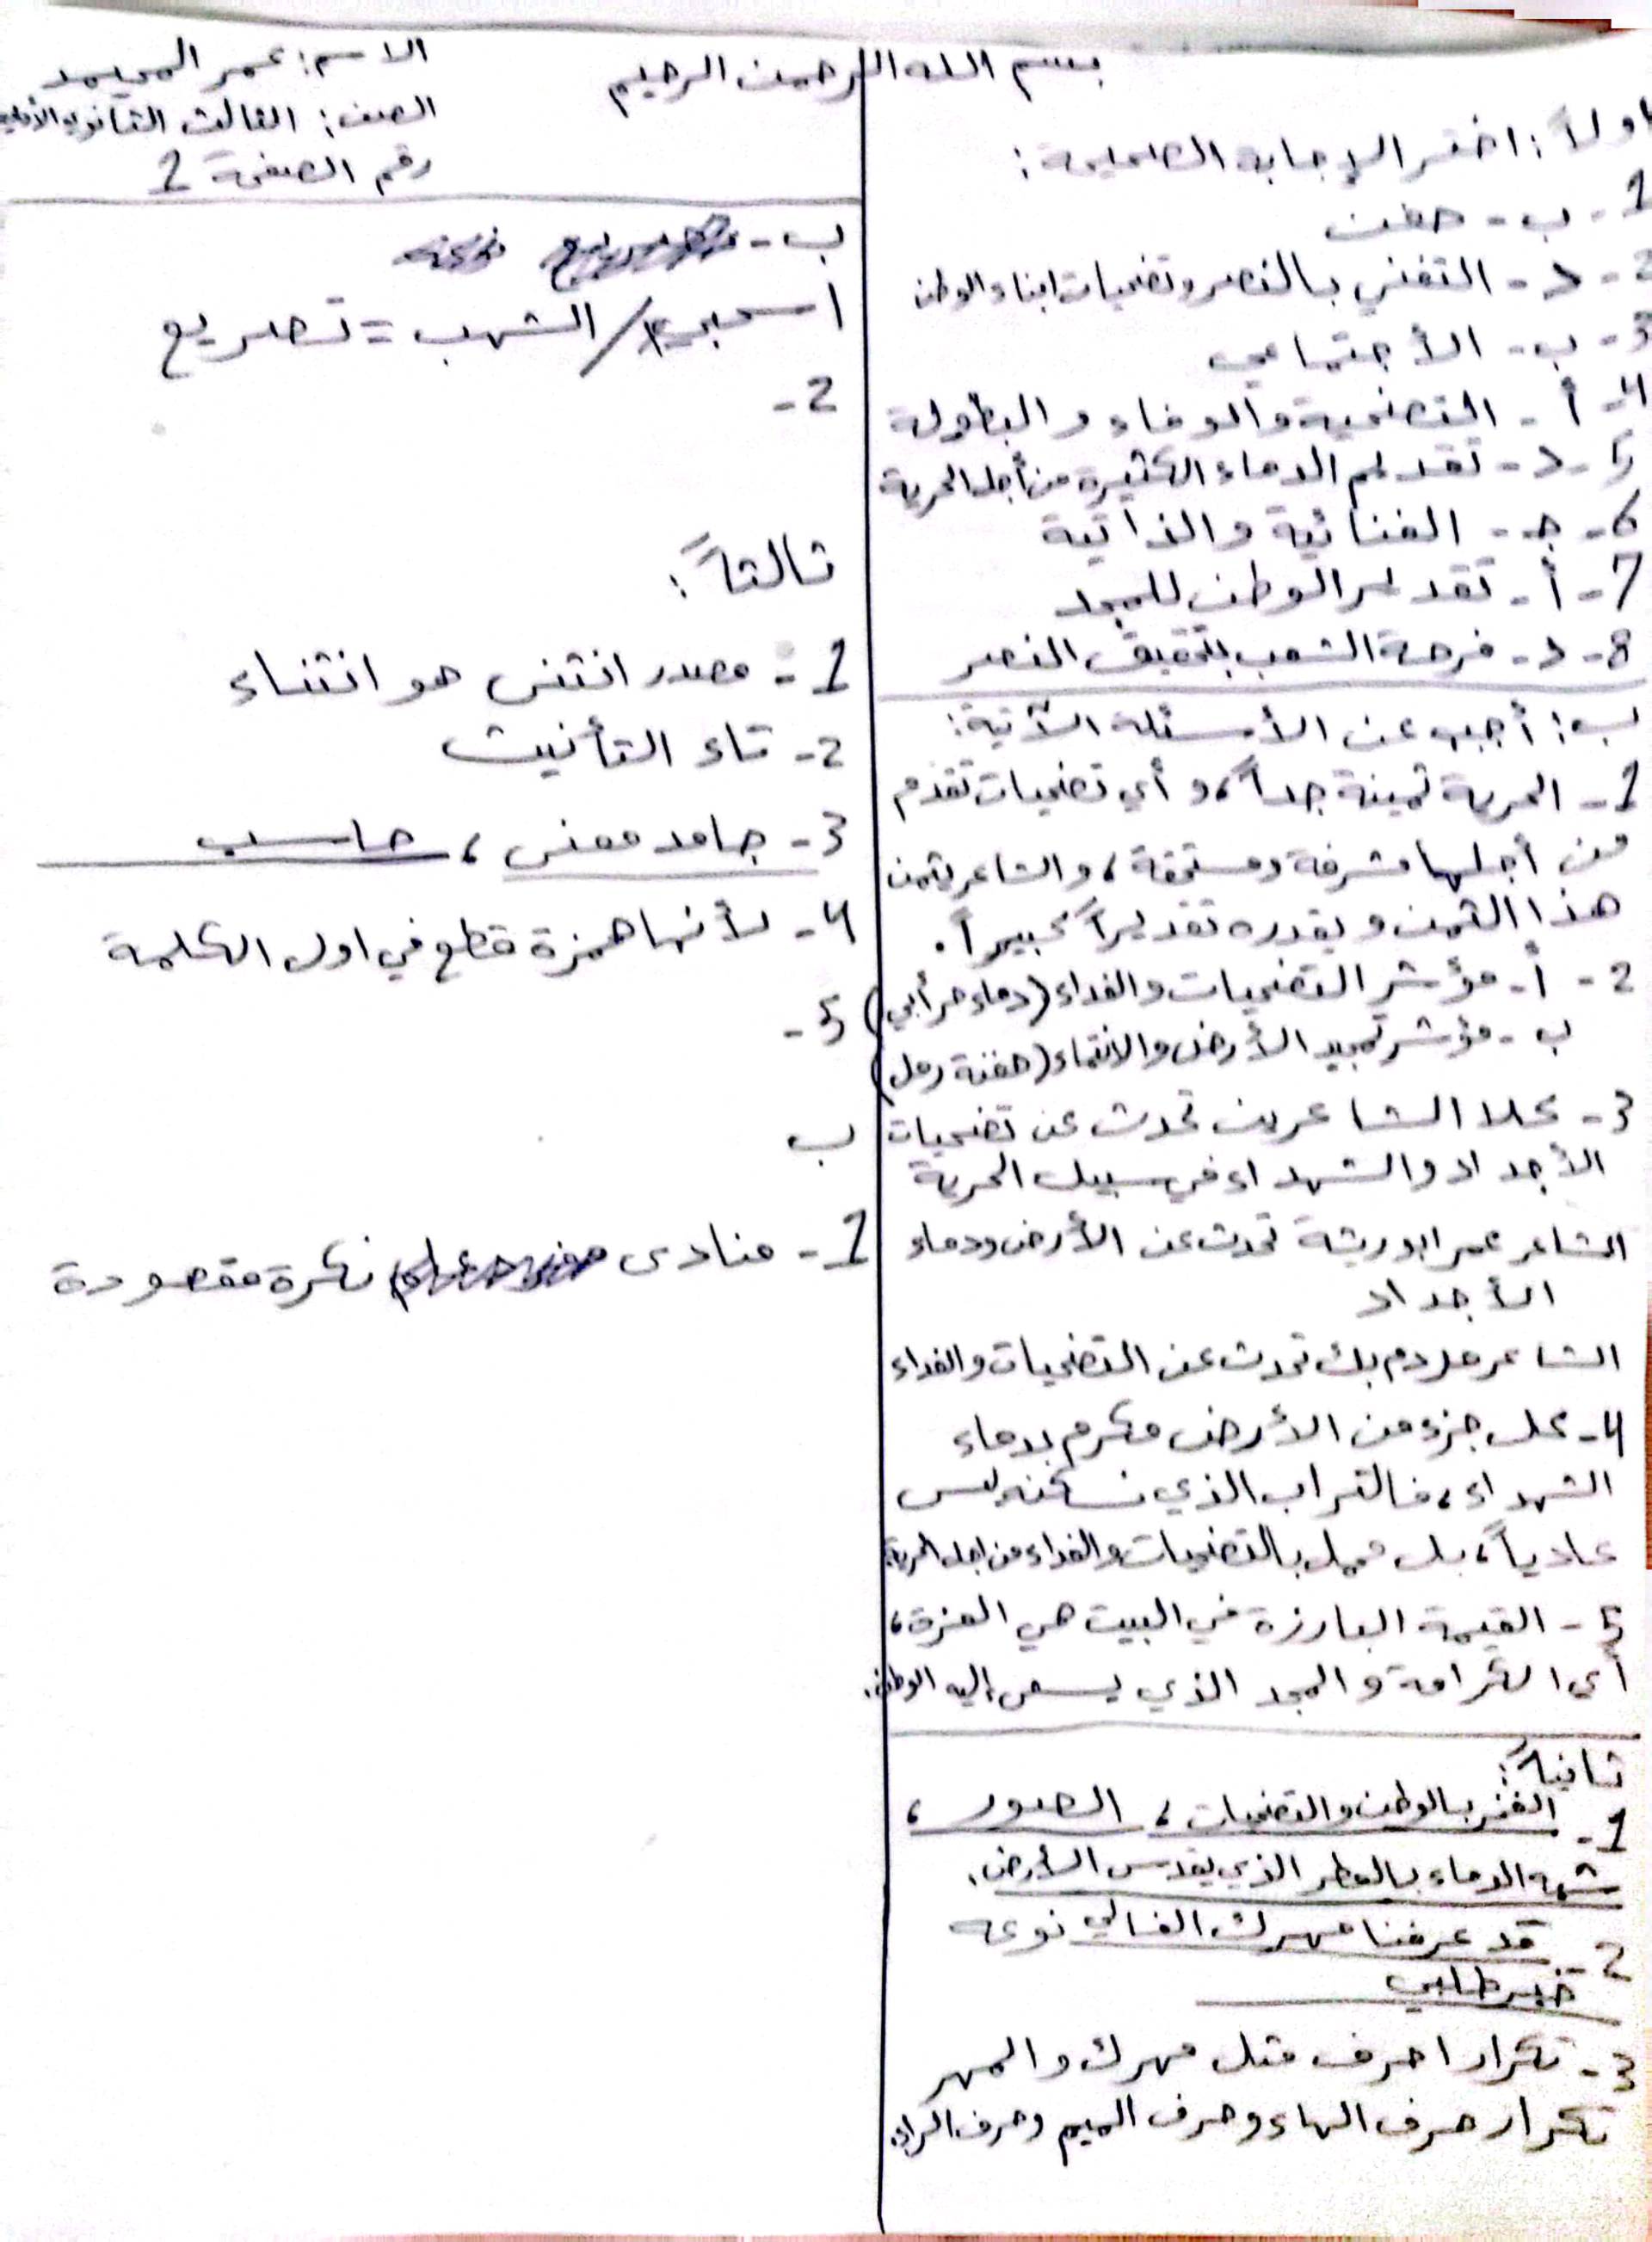 بسم الله الرحمن الرحيم
الاسم: عمر المحيمد
الصف: الثالث الثانوي الأدبي
رقم الصفحة 1
اولاً: اختر الإجابة الصحيحة:
1- ب- حفت
2- د- التغني بالنصر وتضحيات ابناء الوطن
3- ب- الأجتماعي
4- أ- التضحية والوفاء والبطولة
5- د- تقديم الدماء الكثيرة من أجل الحرية
6- جـ- الغنائية والذاتية
7- أ- تقديم الوطن للمجد
8- د- فرحة الشعب بتحقيق النصر
ب: أجب عن الأسئلة الآتية:
1- الحرية ثمينة جداً، و أي تضحيات تقدم
من أجلها مشرفة ومستحقة، والشاعر يثمن
هذا الثمن ويقدره تقديراً كبيراً.
2- أ- مؤشر التضحيات والفداء (دماء حر أبي)
ب- مؤشر تمجيد الأرض والانتماء (حفنة رمل)
3- كلا الشاعرين تحدث عن تضحيات
الأجداد والشهداء في سبيل الحرية
الشاعر عمر ابو ريشة تحدث عن الأرض ودماء
الأجداد
الشاعر مردم بك تحدث عن التضحيات والفداء
4- كل جزء من الأرض مكرم بدماء
الشهداء، فالتراب الذي نسكنه ليس
عادياً، بل محمل بالتضحيات والفداء من اجل الحرية
5- القيمة البارزة في البيت هي العزة،
أي الكرامة والمجد الذي يسعى إليه الوطن.
ثانياً:
1- الفخر بالوطن والتضحيات، الصور،
شبه الدماء بالعطر الذي يقدس الأرض.
2- قد عرفنا مهرك الغالي نوعه
خبر طلبي
3- تكرار احرف مثل مهرك والمهر
تكرار حرف الهاء وحرف الميم وحرف الراء
ب-
اسحبي / الشهب = تصريع
2-
ثالثاً:
1- مصدر انتنى هو انثناء
2- تاء التأنيث
3- جامد معنى، حاسب
4- لأنها همزة قطع في اول الكلمة
5-
ب
1- منادى نكرة مقصودة